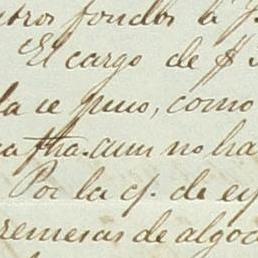 tros fondos à
El cargo de $
la ce puso, como
fha. aun no ha
Por la c/. de
remesas de algod